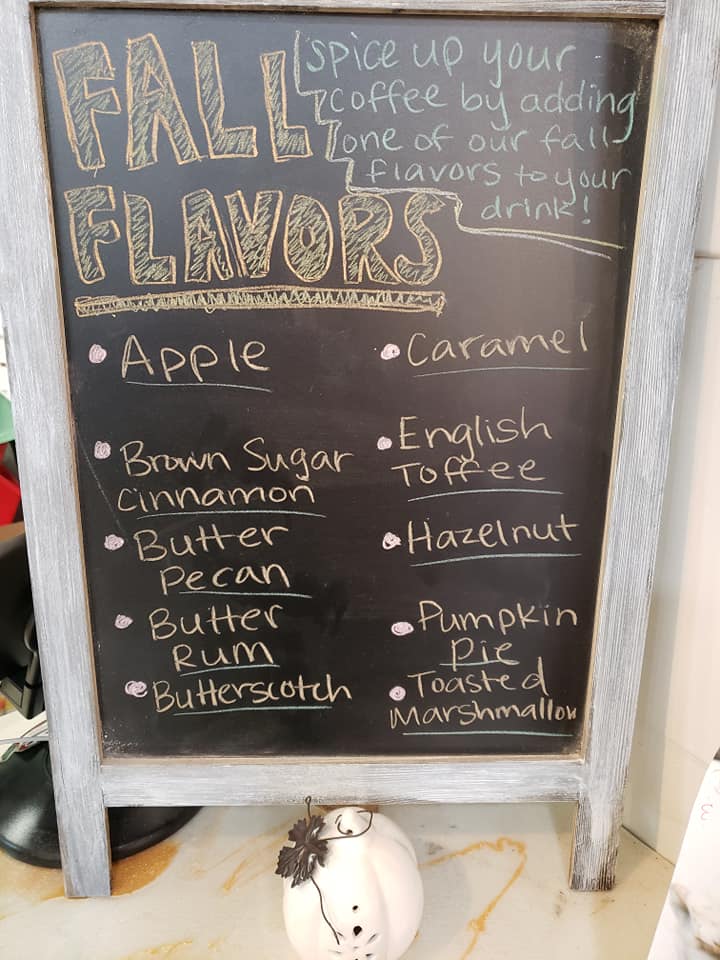 FALL
FLAVORS
spice up your
coffee by adding
one of our fall
flavors to your
drink!
Apple
Brown Sugar
Cinnamon
Butter
Pecan
Butter
Rum
Butterscotch
Caramel
English
Toffee
Hazelnut
Pumpkin
Pie
Toasted
Marshmallow